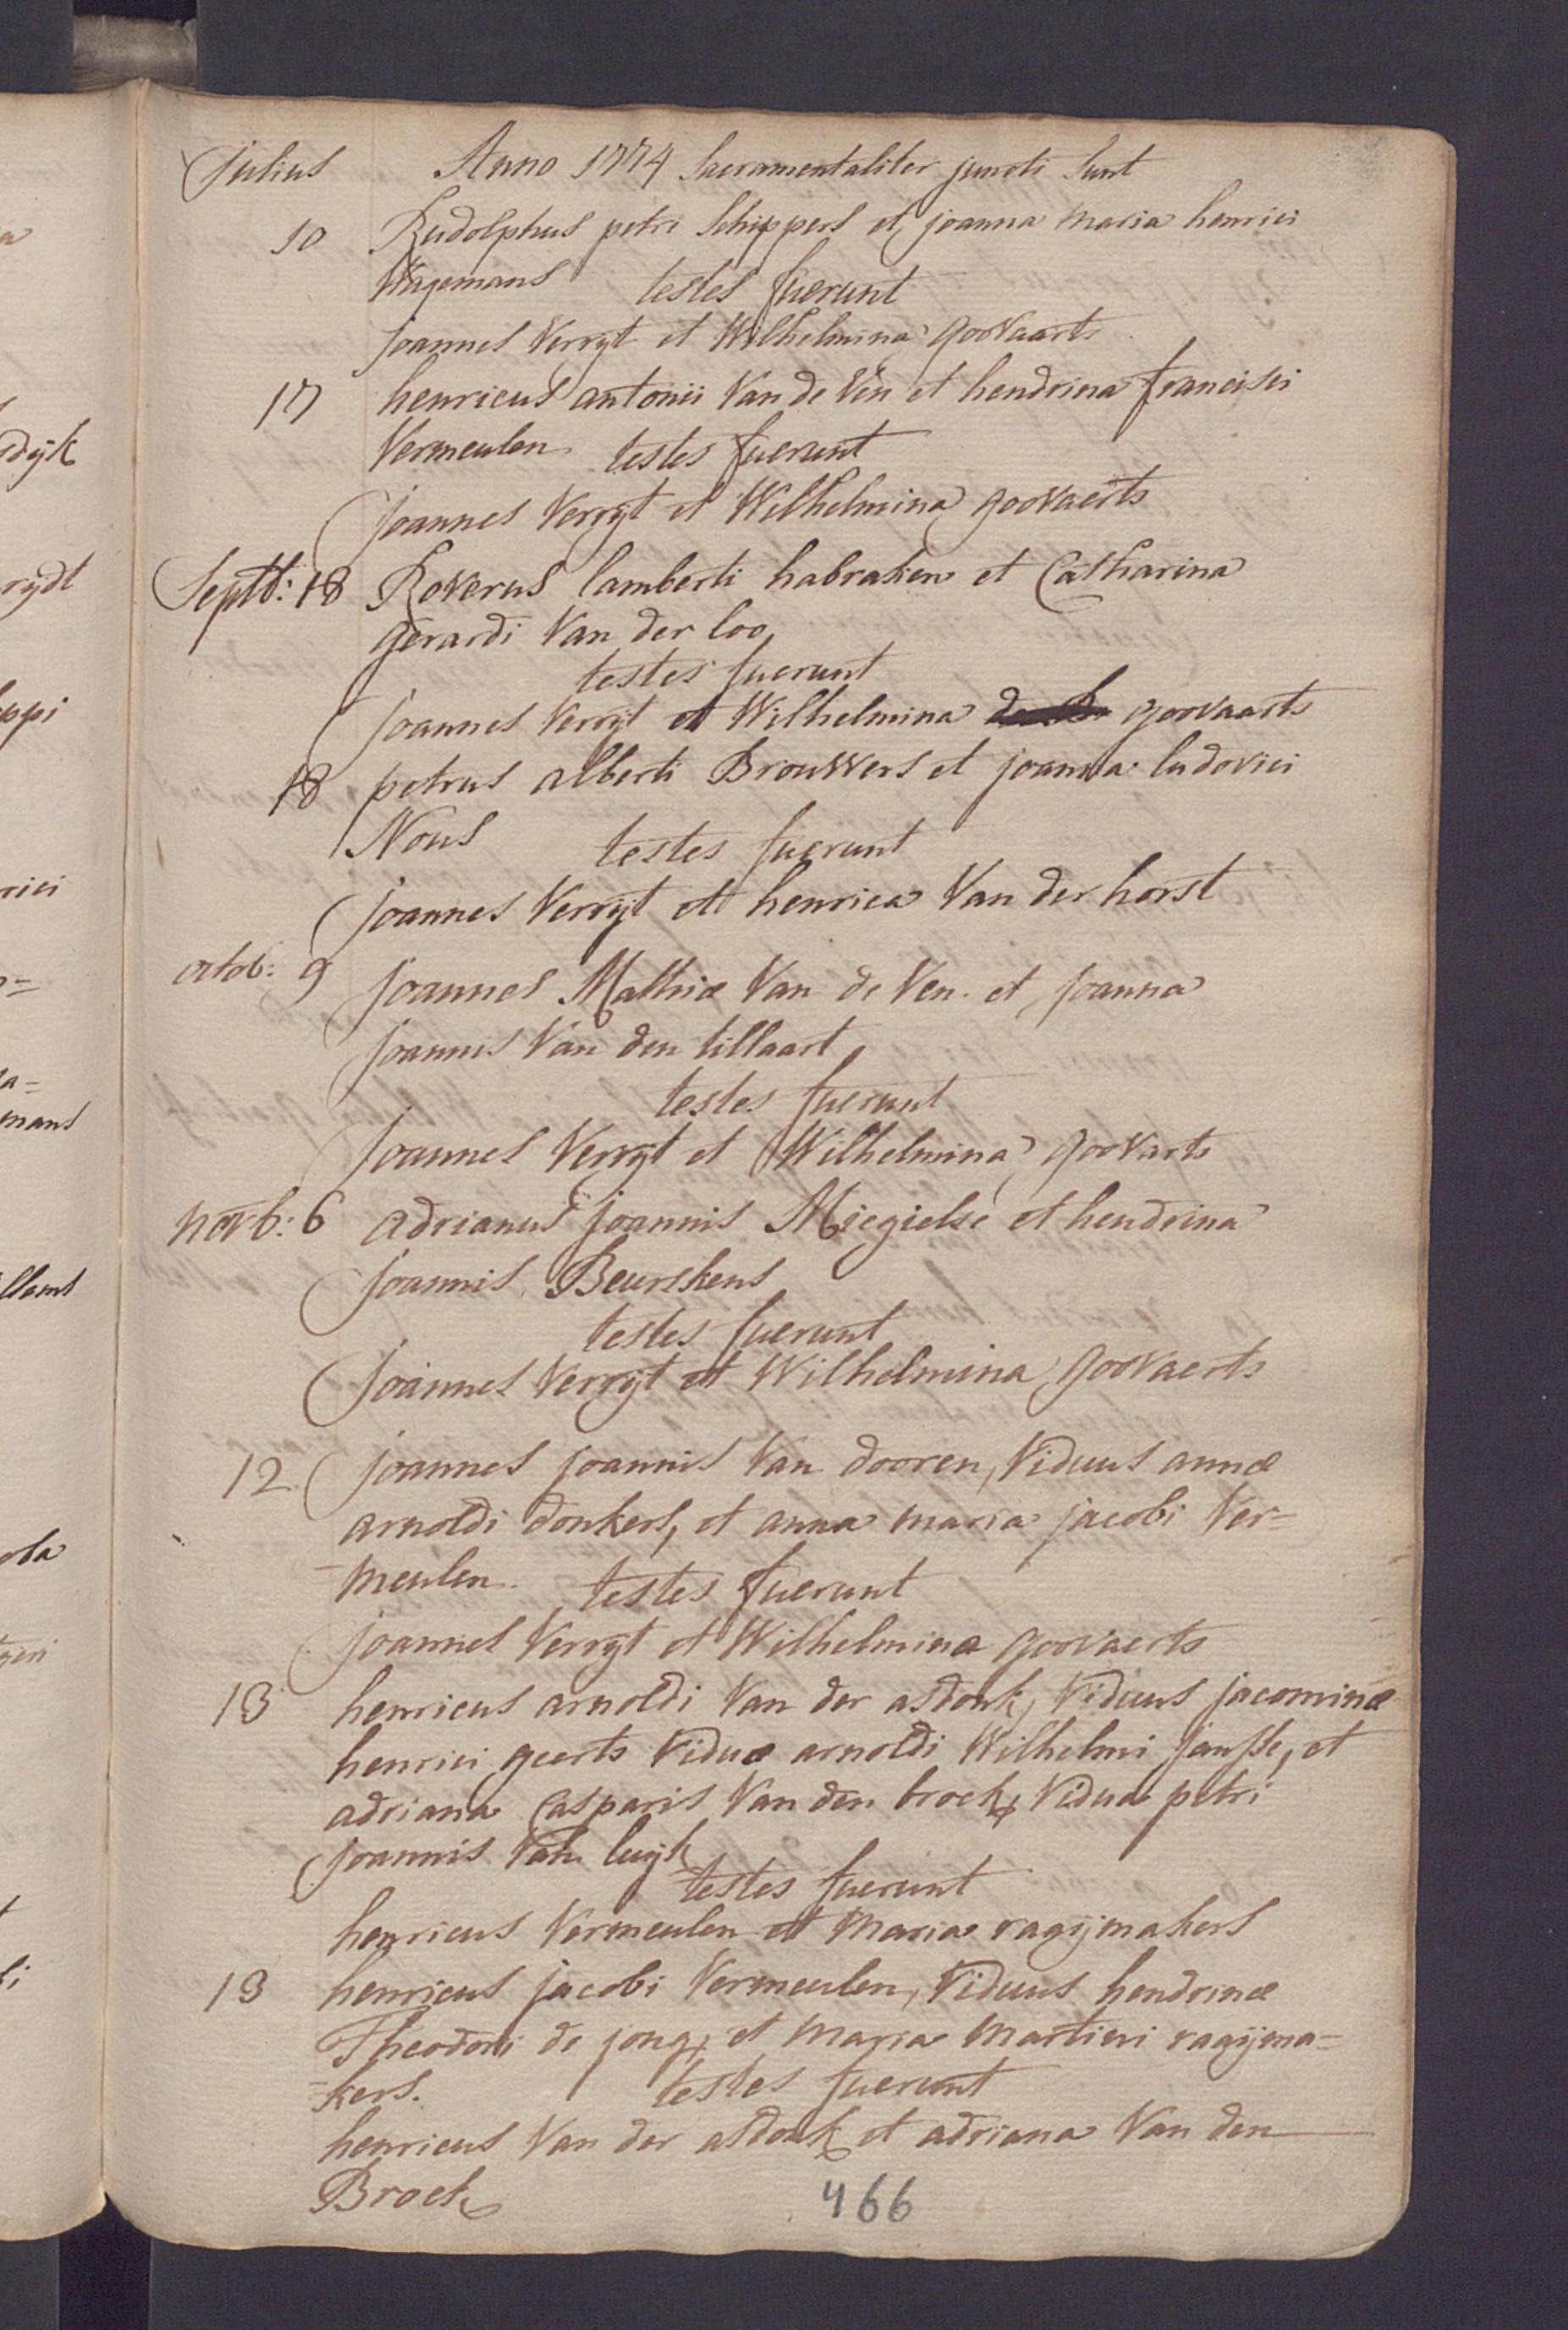 Julius Anno 1774 Sacramentaliter juncti sunt
10 Rudolphus petri Schippers et joanna maria henrici
Wagemans testes fuerunt
Joannes Verryt et Wilhelmina goovaarts
17 henricus antonii Van de Ven et hendrina francisci
Vermeulen testes fuerunt
Joannes Verryt et Wilhelmina goovaerts
Septb: 18 Roverus lamberti habraken et Catharina
gerardi Van der loo
testes fuerunt
Joannes Verryt et Wilhelmina goovaarts
18 petrus alberti Brouwers et joanna ludovici
Nous testes fuerunt
Joannes Verryt et henrica Van der horst
octob: 9 Joannes Mathiæ Van de Ven et Joanna
Joannis Van den tillaart
testes fuerunt
Joannes Verryt et Wilhelmina goovarts
novb: 6 adrianus Joannis Miegielse et hendrina
Joannis Beurskens
testes fuerunt
Joannes Verryt et Wilhelmina goovaerts
12 Joannes Joannis Van dooren, Viduus annæ
arnoldi donkers, et anna maria jacobi Ver=
=meulen. testes fuerunt
Joannes Verryt et Wilhelmina goovaerts
13 henricus arnoldi Van der asdonk, Viduus jacominæ
henrici geerts Viduæ arnoldi Wilhelmi Janssе, et
adriana Casparis Van den broek, Vidua petri
Joannis Van luijk
testes fuerunt
henricus Vermeulen et Maria raaijmakers
13 henricus jacobi Vermeulen, Viduus hendrinæ
Theodori de jong, et Maria Martini raaijma=
=kers. testes fuerunt
henricus Van der asdonk et adriana Van den
Broek
466
dijk
rijdt
ppi
rici
a=
mans
llems
ola